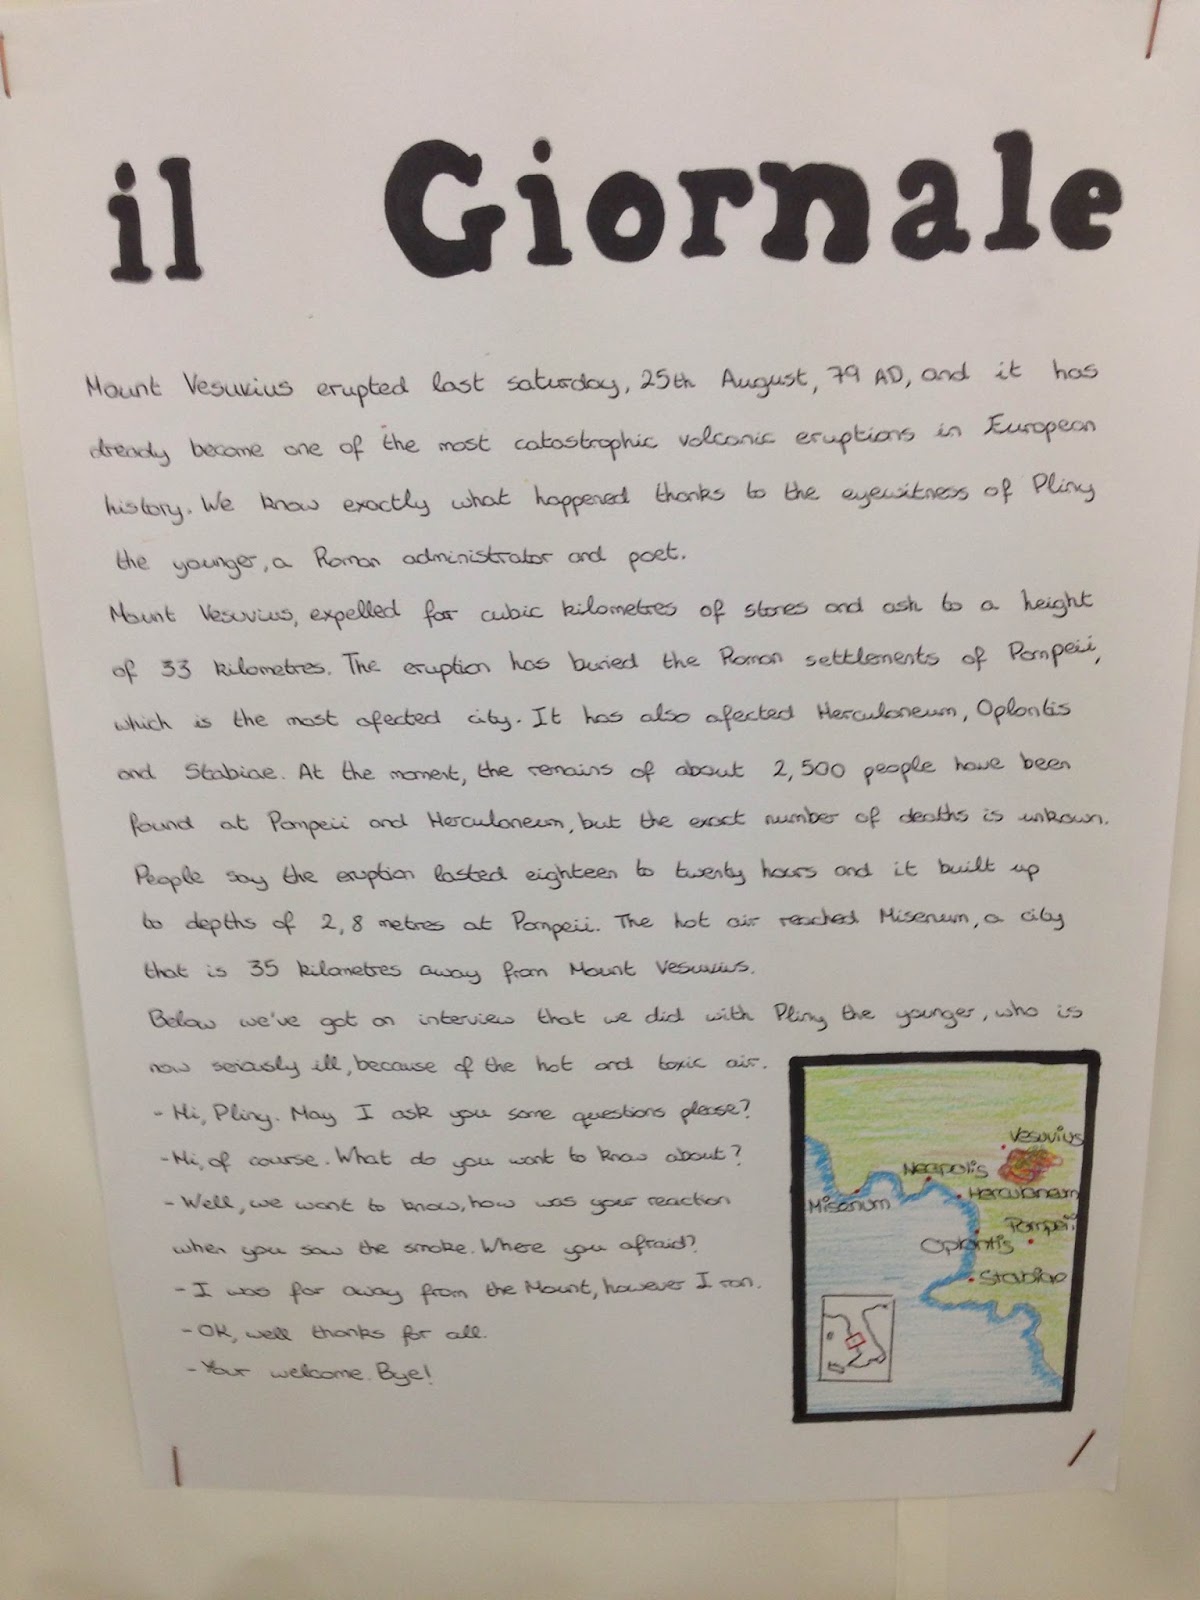 il Giornale
Mount Vesuvius erupted last saturday, 25th August, 79 AD, and it has
already become one of the most catastrophic volcanic eruptions in European
history. We know exactly what happened thanks to the eyewitness of Pliny
the younger, a Roman administrator and poet.
Mount Vesuvius, expelled for cubic kilometres of stones and ash to a height
of 33 kilometres. The eruption has buried the Roman settlements of Pompeii,
which is the most afected city. It has also afected Herculaneum, Oplontis
and Stabiae. At the moment, the remains of about 2,500 people have been
found at Pompeii and Herculaneum, but the exact number of deaths is unkown.
People say the eruption lasted eighteen to twenty hours and it built up
to depths of 2,8 metres at Pompeii. The hot air reached Misenum, a city
that is 35 kilometres away from Mount Vesuvius.
Below we've got an interview that we did with Pliny the younger, who is
now seriously ill, because of the hot and toxic air.
- Hi, Pliny. May I ask you some questions please?
- Hi, of course. What do you want to know about?
- Well, we want to know, how was your reaction
when you saw the smoke. Where you afraid?
- I was far away from the Mount, however I ran.
- OK, well thanks for all.
- Your welcome. Bye!
Vesuvius
Neapolis
Herculaneum
Misenum
Pompeii
Oplontis
Stabiae